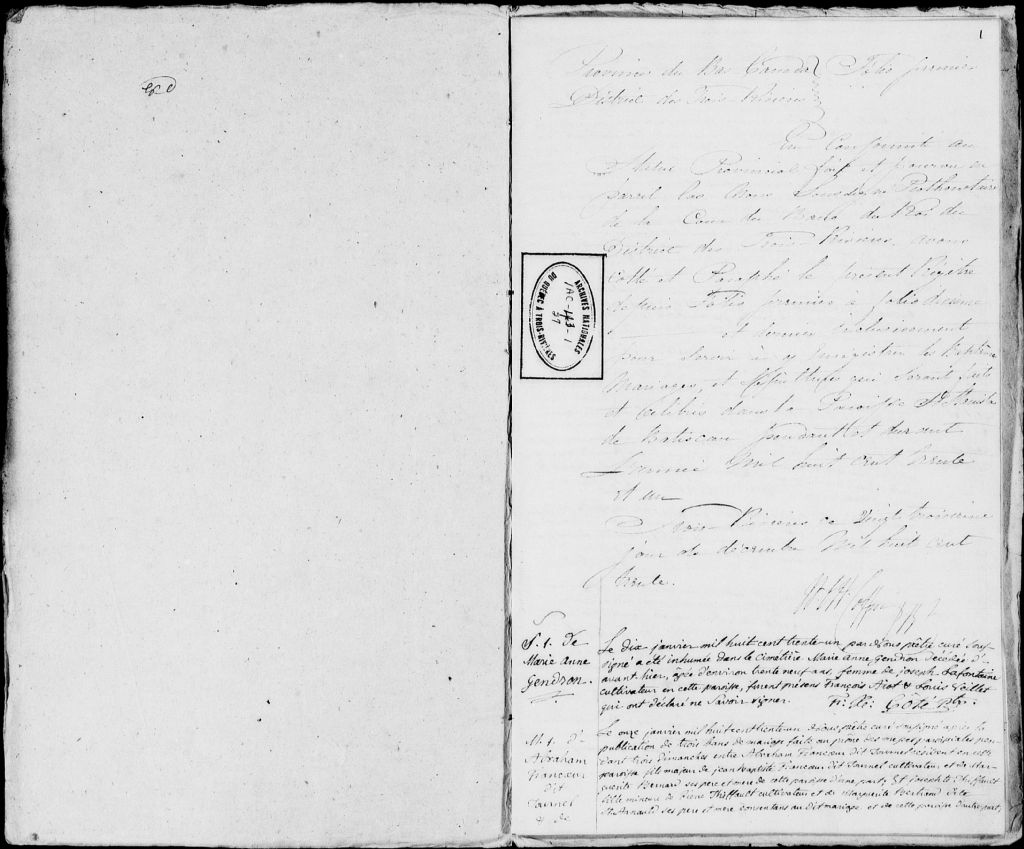 1
Province du Bas Canada Folio premier
District des Trois-Rivières
En conformité au
Statut Provincial fait et pourvu en
pareil cas Nous Soussigné Prothonotaire
de la Cour du Banc du Roi du
District des Trois-Rivières, avons
Cotté et Paraphé le présent Régistre
depuis Folio premier à folio
et dernier inclusivement
pour servir à y enregistrer les Baptêmes
Mariages, et Sépultures qui seront faits
et célébrés dans la Paroisse St
de Batiscan pendant et durant
L'année Mil huit cent trente
et un
Trois Rivières ce Vingt troisième
jour de décembre Mil huit cent
trente.
ARCHIVES NATIONALES
DU QUÉBEC À TROIS-RIVIÈRES
S. 1. de
Marie Anne
Gendron.
Le dix janvier mil huit cent trente-un par Nous prêtre curé sous-
signé a été inhumée dans le Cimetière Marie Anne Gendron décédée d'-
avant hier, âgée d'environ trente neuf ans, femme de Joseph Lafontaine
cultivateur en cette paroisse, furent présens François & Louis
qui ont déclaré ne savoir signer. Côté Ptre.
M. 1. d'-
Abraham
Francœur
dit
&c de
Le onze janvier mil huit cent trente-un Nous, prêtre curé soussigné après la
publication de trois bans de mariage faite au prône des messes paroissiales pen-
dant trois Dimanches entre Abraham Francœur dit résident en cette
paroisse fils majeur de Jean Baptiste Francœur dit cultivateur, et de Mar-
guerite Bernard ses père et mère de cette paroisse d'une part; Et Josephte Thiffault
fille mineure de Pierre Thiffault cultivateur et de Marguerite Bertrand dite
St. Arnauld ses père et mère consentans au dit mariage, et de cette paroisse d'autre part,